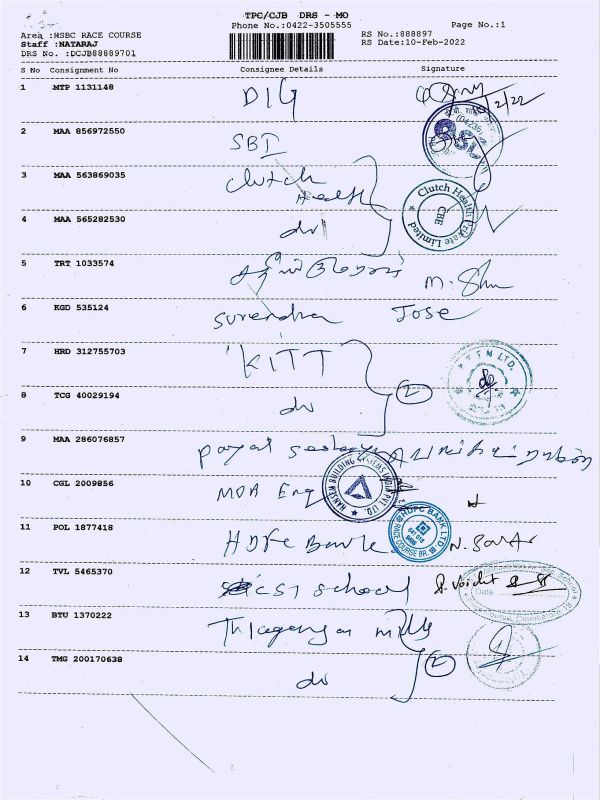 TPC/CJB DRS - MO
Phone No.:0422-3505555
Page No.:1
Area :HSBC RACE COURSE
Staff :NATARAJ
DRS No. :DCJB88889701
RS No.:888897
RS Date:10-Feb-2022
S No Consignment No Consignee Details Signature
1 MTP 1131148 DIG
2 MAA 856972550 SBI
3 MAA 563869035 Clutch Health
Clutch Health Private Limited
CBE
4 MAA 565282530 do
5 TRT 1033574
6 KGD 535124 Surendra Jose
7 HRD 312755703 KITT
8 TCG 40029194 do 2
9 MAA 286076857 payal
10 CGL 2009856 MOA Eng
11 POL 1877418 HDFC Bank
HDFC BANK LTD.
RACE COURSE BR.
12 TVL 5465370 CSI School
13 BTU 1370222 Mills
14 TMG 200170638 do 2